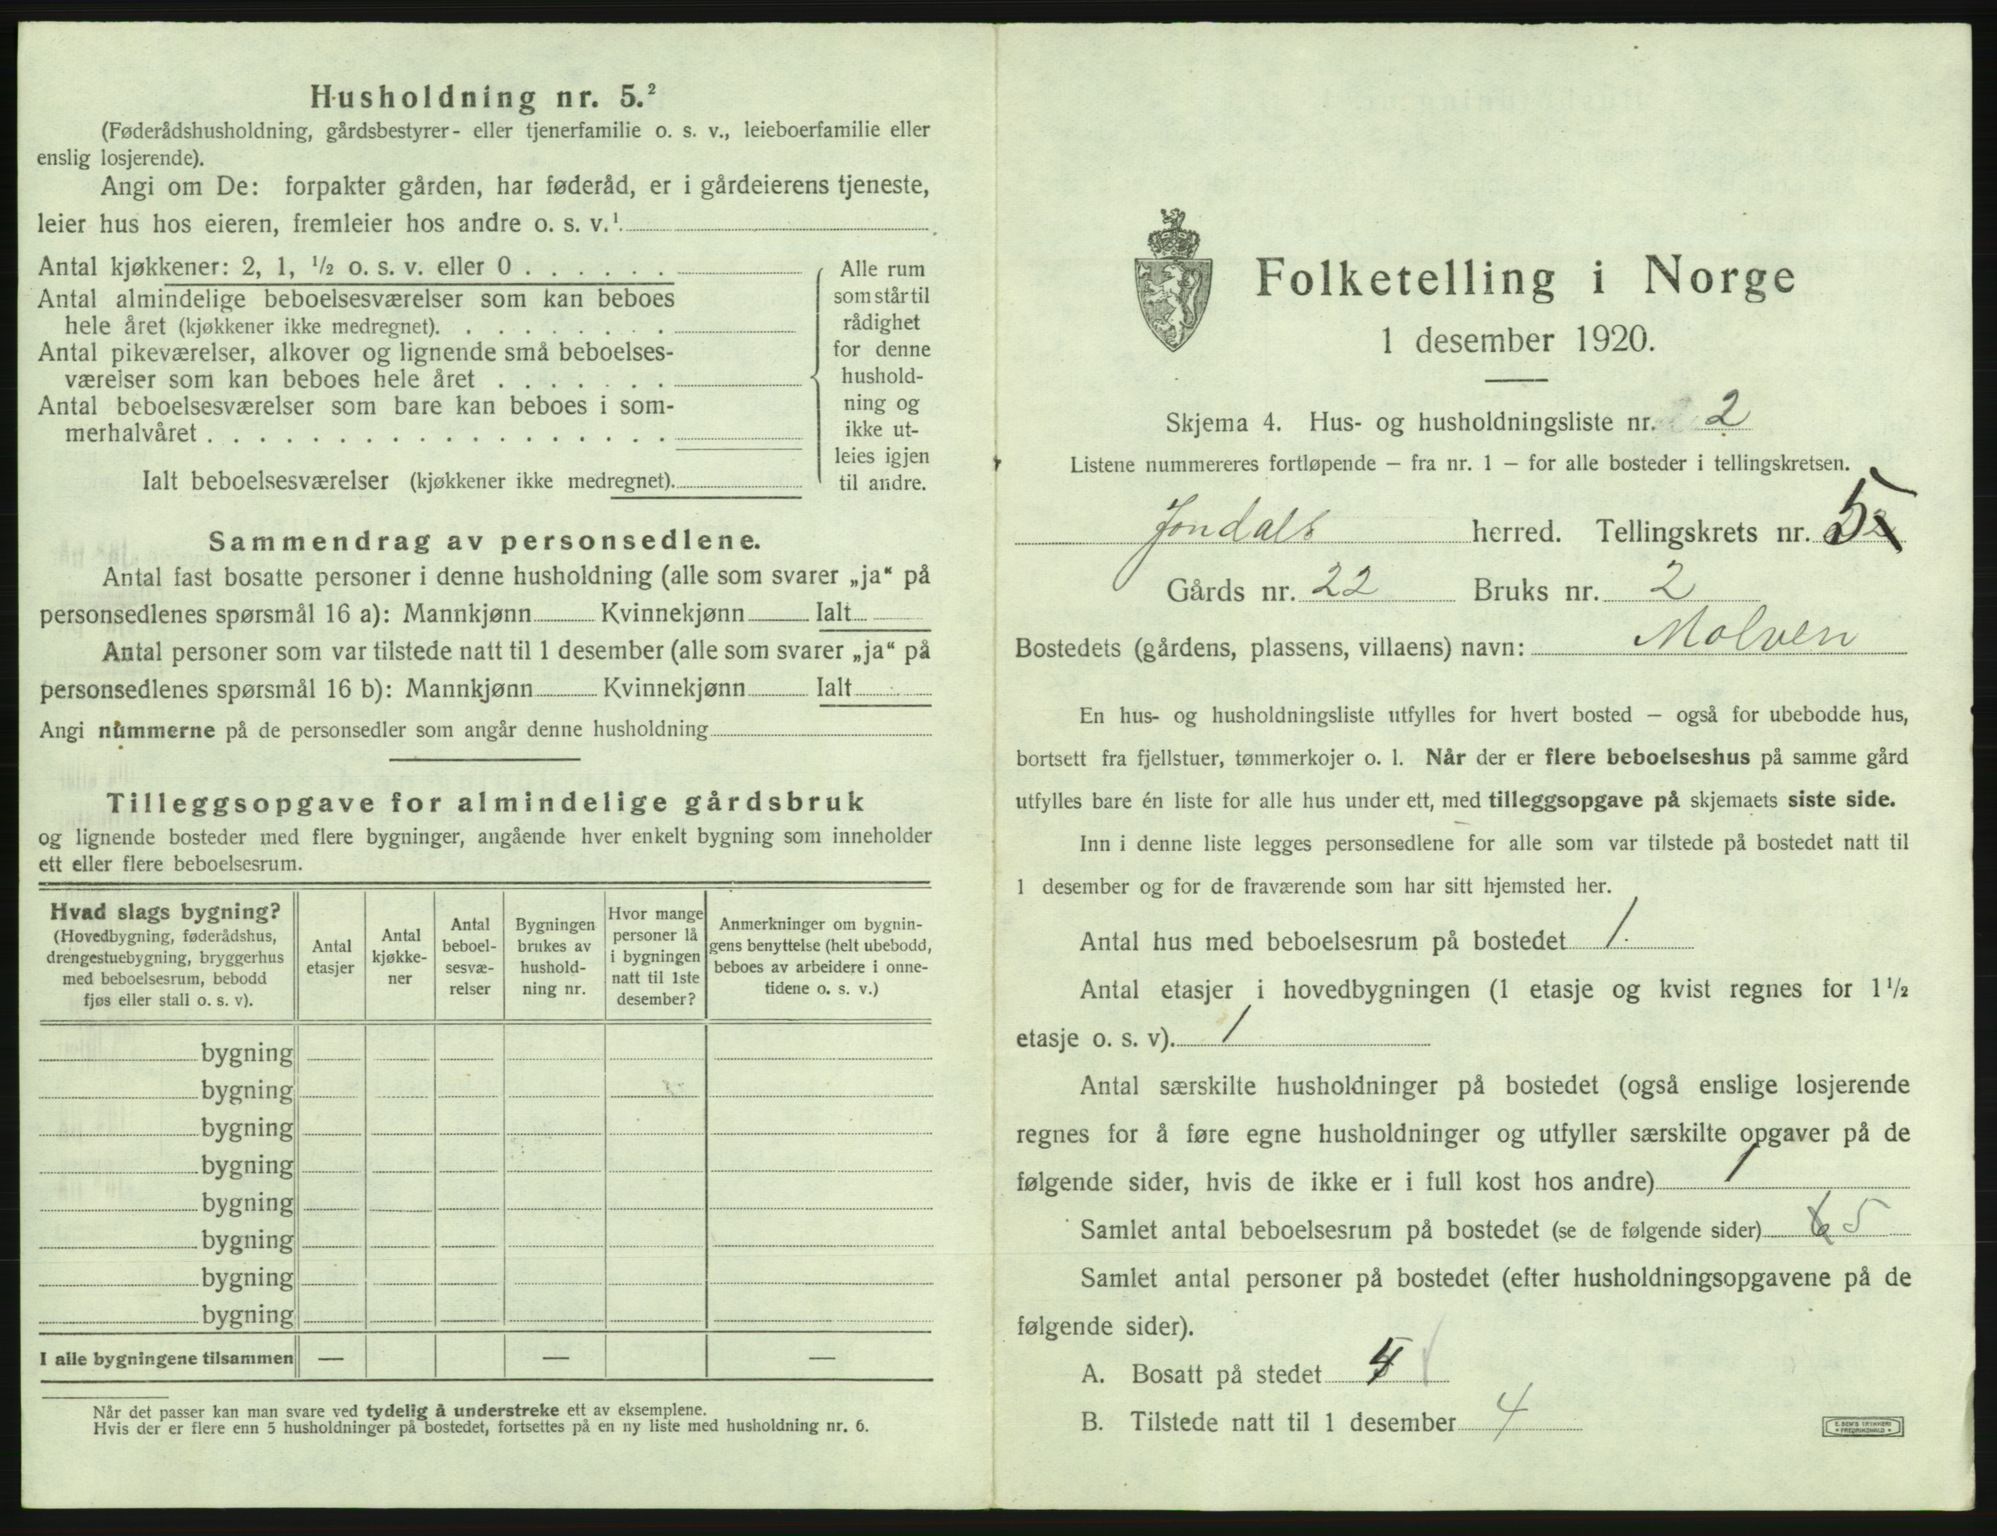 Husholdning nr. 5.²
(Føderådshusholdning, gårdsbestyrer- eller tjenerfamilie o. s. v., leieboerfamilie eller
enslig losjerende).
Angi om De: forpakter gården, har føderåd, er i gårdeierens tjeneste,
leier hus hos eieren, fremleier hos andre o. s. v.¹
Antal kjøkkener: 2, 1, ½ o. s. v. eller 0 . . . . . .
Antal almindelige beboelsesværelser som kan beboes
hele året (kjøkkener ikke medregnet). . . . . . . . .
Antal pikeværelser, alkover og lignende små beboelses-
værelser som kan beboes hele året . . . . . . .
Antal beboelsesværelser som bare kan beboes i som-
merhalvåret . . . . . . . . . . . . . . . . . .
Ialt beboelsesværelser (kjøkkener ikke medregnet).
Alle rum
som står til
rådighet
for denne
hushold-
ning og
ikke ut-
leies igjen
til andre.
Sammendrag av personsedlene.
Antal fast bosatte personer i denne husholdning (alle som svarer „ja“ på
personsedlenes spørsmål 16 a): Mannkjønn Kvinnekjønn Ialt
Antal personer som var tilstede natt til 1 desember (alle som svarer „ja“ på
personsedlenes spørsmål 16 b): Mannkjønn Kvinnekjønn Ialt
Angi nummerne på de personsedler som angår denne husholdning
Tilleggsopgave for almindelige gårdsbruk
og lignende bosteder med flere bygninger, angående hver enkelt bygning som inneholder
ett eller flere beboelsesrum.
Hvad slags bygning?
(Hovedbygning, føderådshus,
drengestuebygning, bryggerhus
med beboelsesrum, bebodd
fjøs eller stall o. s. v).
Antal
etasjer
Antal
kjøkke-
ner
Antal
beboel-
sesvæ-
relser
Bygningen
brukes av
hushold-
ning nr.
Hvor mange
personer lå
i bygningen
natt til 1ste
desember?
Anmerkninger om bygnin-
gens benyttelse (helt ubebodd,
beboes av arbeidere i onne-
tidene o. s. v.)
bygning
bygning
bygning
bygning
bygning
bygning
bygning
bygning
I alle bygningene tilsammen — — —
Når det passer kan man svare ved tydelig å understreke ett av eksemplene.
Hvis der er flere enn 5 husholdninger på bostedet, fortsettes på en ny liste med husholdning nr. 6.
Folketelling i Norge
1 desember 1920.
Skjema 4. Hus- og husholdningsliste nr. 2
Listene nummereres fortløpende – fra nr. 1 – for alle bosteder i tellingskretsen.
Jondals herred. Tellingskrets nr. 5
Gårds nr. 22 Bruks nr. 2
Bostedets (gårdens, plassens, villaens) navn: Molven
En hus- og husholdningsliste utfylles for hvert bosted – også for ubebodde hus,
bortsett fra fjellstuer, tømmerkojer o. l. Når der er flere beboelseshus på samme gård
utfylles bare én liste for alle hus under ett, med tilleggsopgave på skjemaets siste side.
Inn i denne liste legges personsedlene for alle som var tilstede på bostedet natt til
1 desember og for de fraværende som har sitt hjemsted her.
Antal hus med beboelsesrum på bostedet 1.
Antal etasjer i hovedbygningen (1 etasje og kvist regnes for 1½
etasje o. s. v). 1
Antal særskilte husholdninger på bostedet (også enslige losjerende
regnes for å føre egne husholdninger og utfyller særskilte opgaver på de
følgende sider, hvis de ikke er i full kost hos andre) 1
Samlet antal beboelsesrum på bostedet (se de følgende sider) 6 5
Samlet antal personer på bostedet (efter husholdningsopgavene på de
følgende sider).
A. Bosatt på stedet
B. Tilstede natt til 1 desember 4
E. SEM'S TRYKKERI
• FREDRIKSHALD •